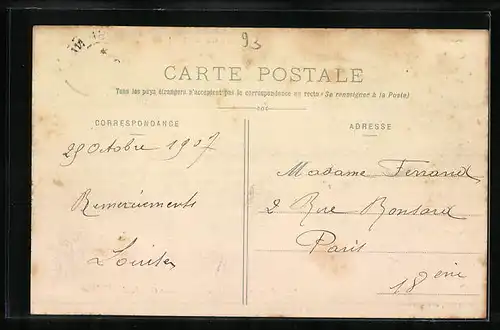 93
CARTE POSTALE
Tous les pays étrangers n'acceptent pas la correspondance au recto (Se renseigner à la Poste)
CORRESPONDANCE
ADRESSE
29 Octobre 1907
Madame Ferrand
Remerciements
2 Rue Ronsard
Louise
Paris
18 ème